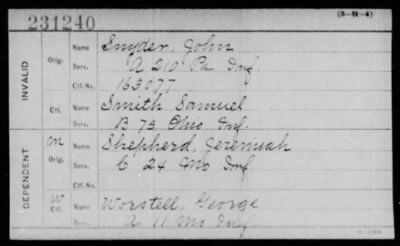 231240
(3-H-4)
INVALID
Orig.
Name Snyder, John
Serv. A 210 Pa Inf.
Ctf. No. 153077
Ctf.
Name Smith Samuel
Serv. B 73 Ohio Inf.
DEPENDENT
M
Orig.
Name Shepherd, Jeremiah
Serv. C 24 Mo Inf
Ctf. No.
W
Ctf.
Name Worstell, George
Serv. A 11 Mo Inf